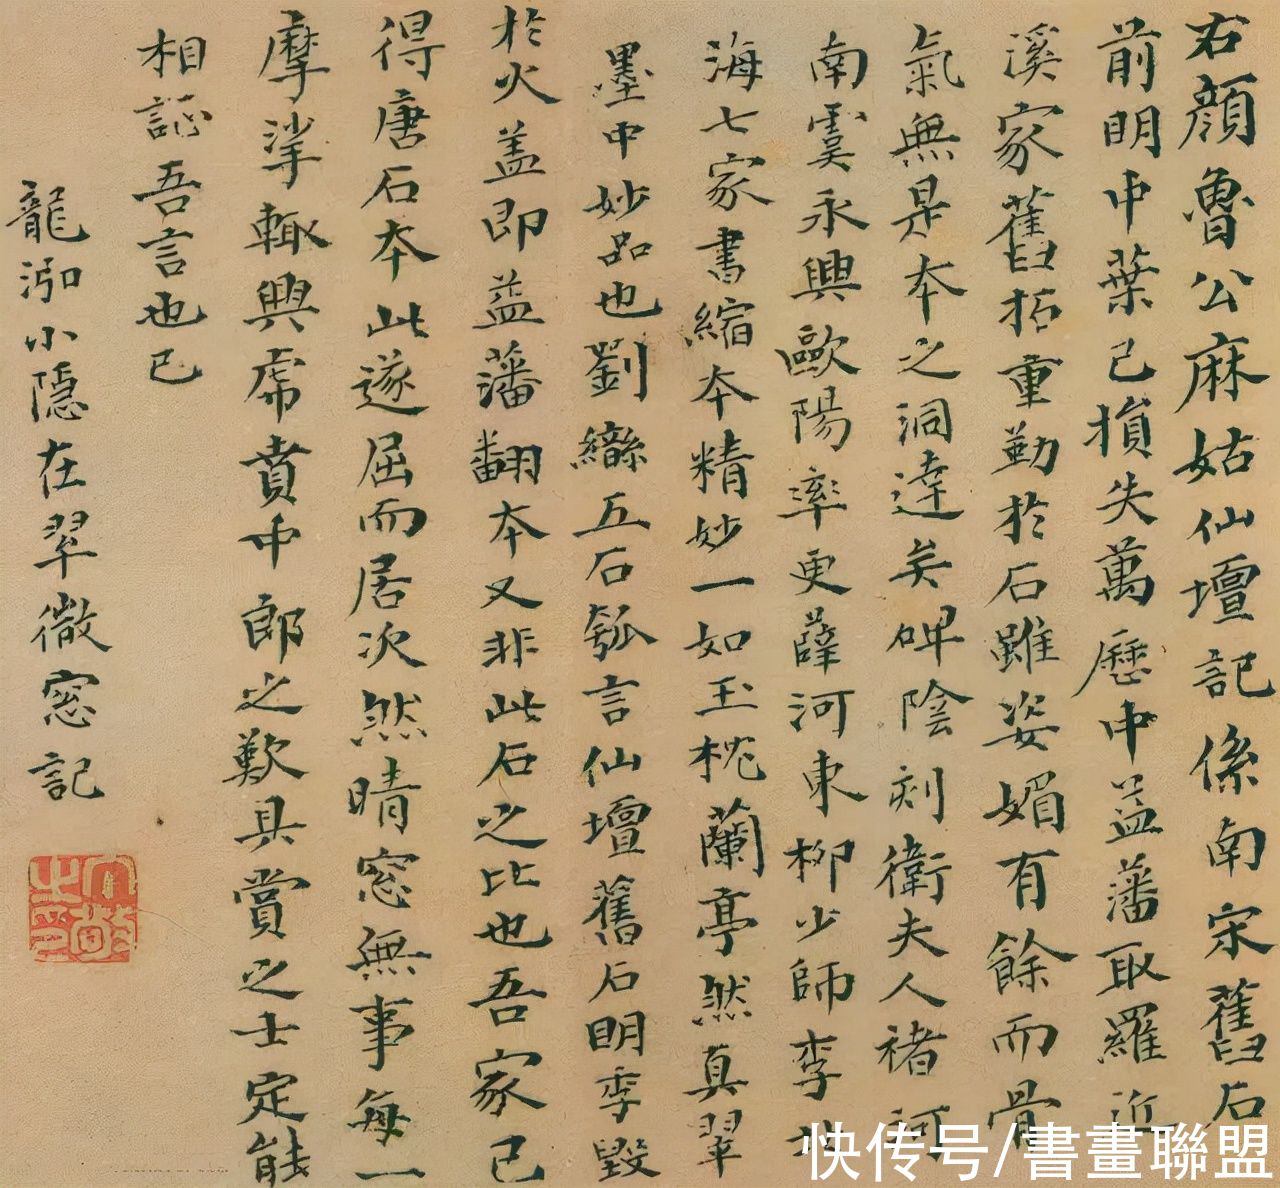 右顏魯公麻姑仙壇記係南宋舊石
前明中葉已損失萬歷中益藩取羅近
溪家舊拓重勒於石雖姿媚有餘而骨
氣無是本之洞達矣碑陰刻衛夫人褚河
南虞永興歐陽率更薛河東柳少師李北
海七家書縮本精妙一如玉枕蘭亭然真翠
墨中妙品也劉繼五石瓠言仙壇舊石明季毀
於火蓋即益藩翻本又非此石之比也吾家已
得唐石本此遂屈而居次然晴窓無事每一
摩挲輒興虎賁中郎之歎具賞之士定能
相證吾言也已
龍泓小隱在翠微窓記
快传号/書畫聯盟